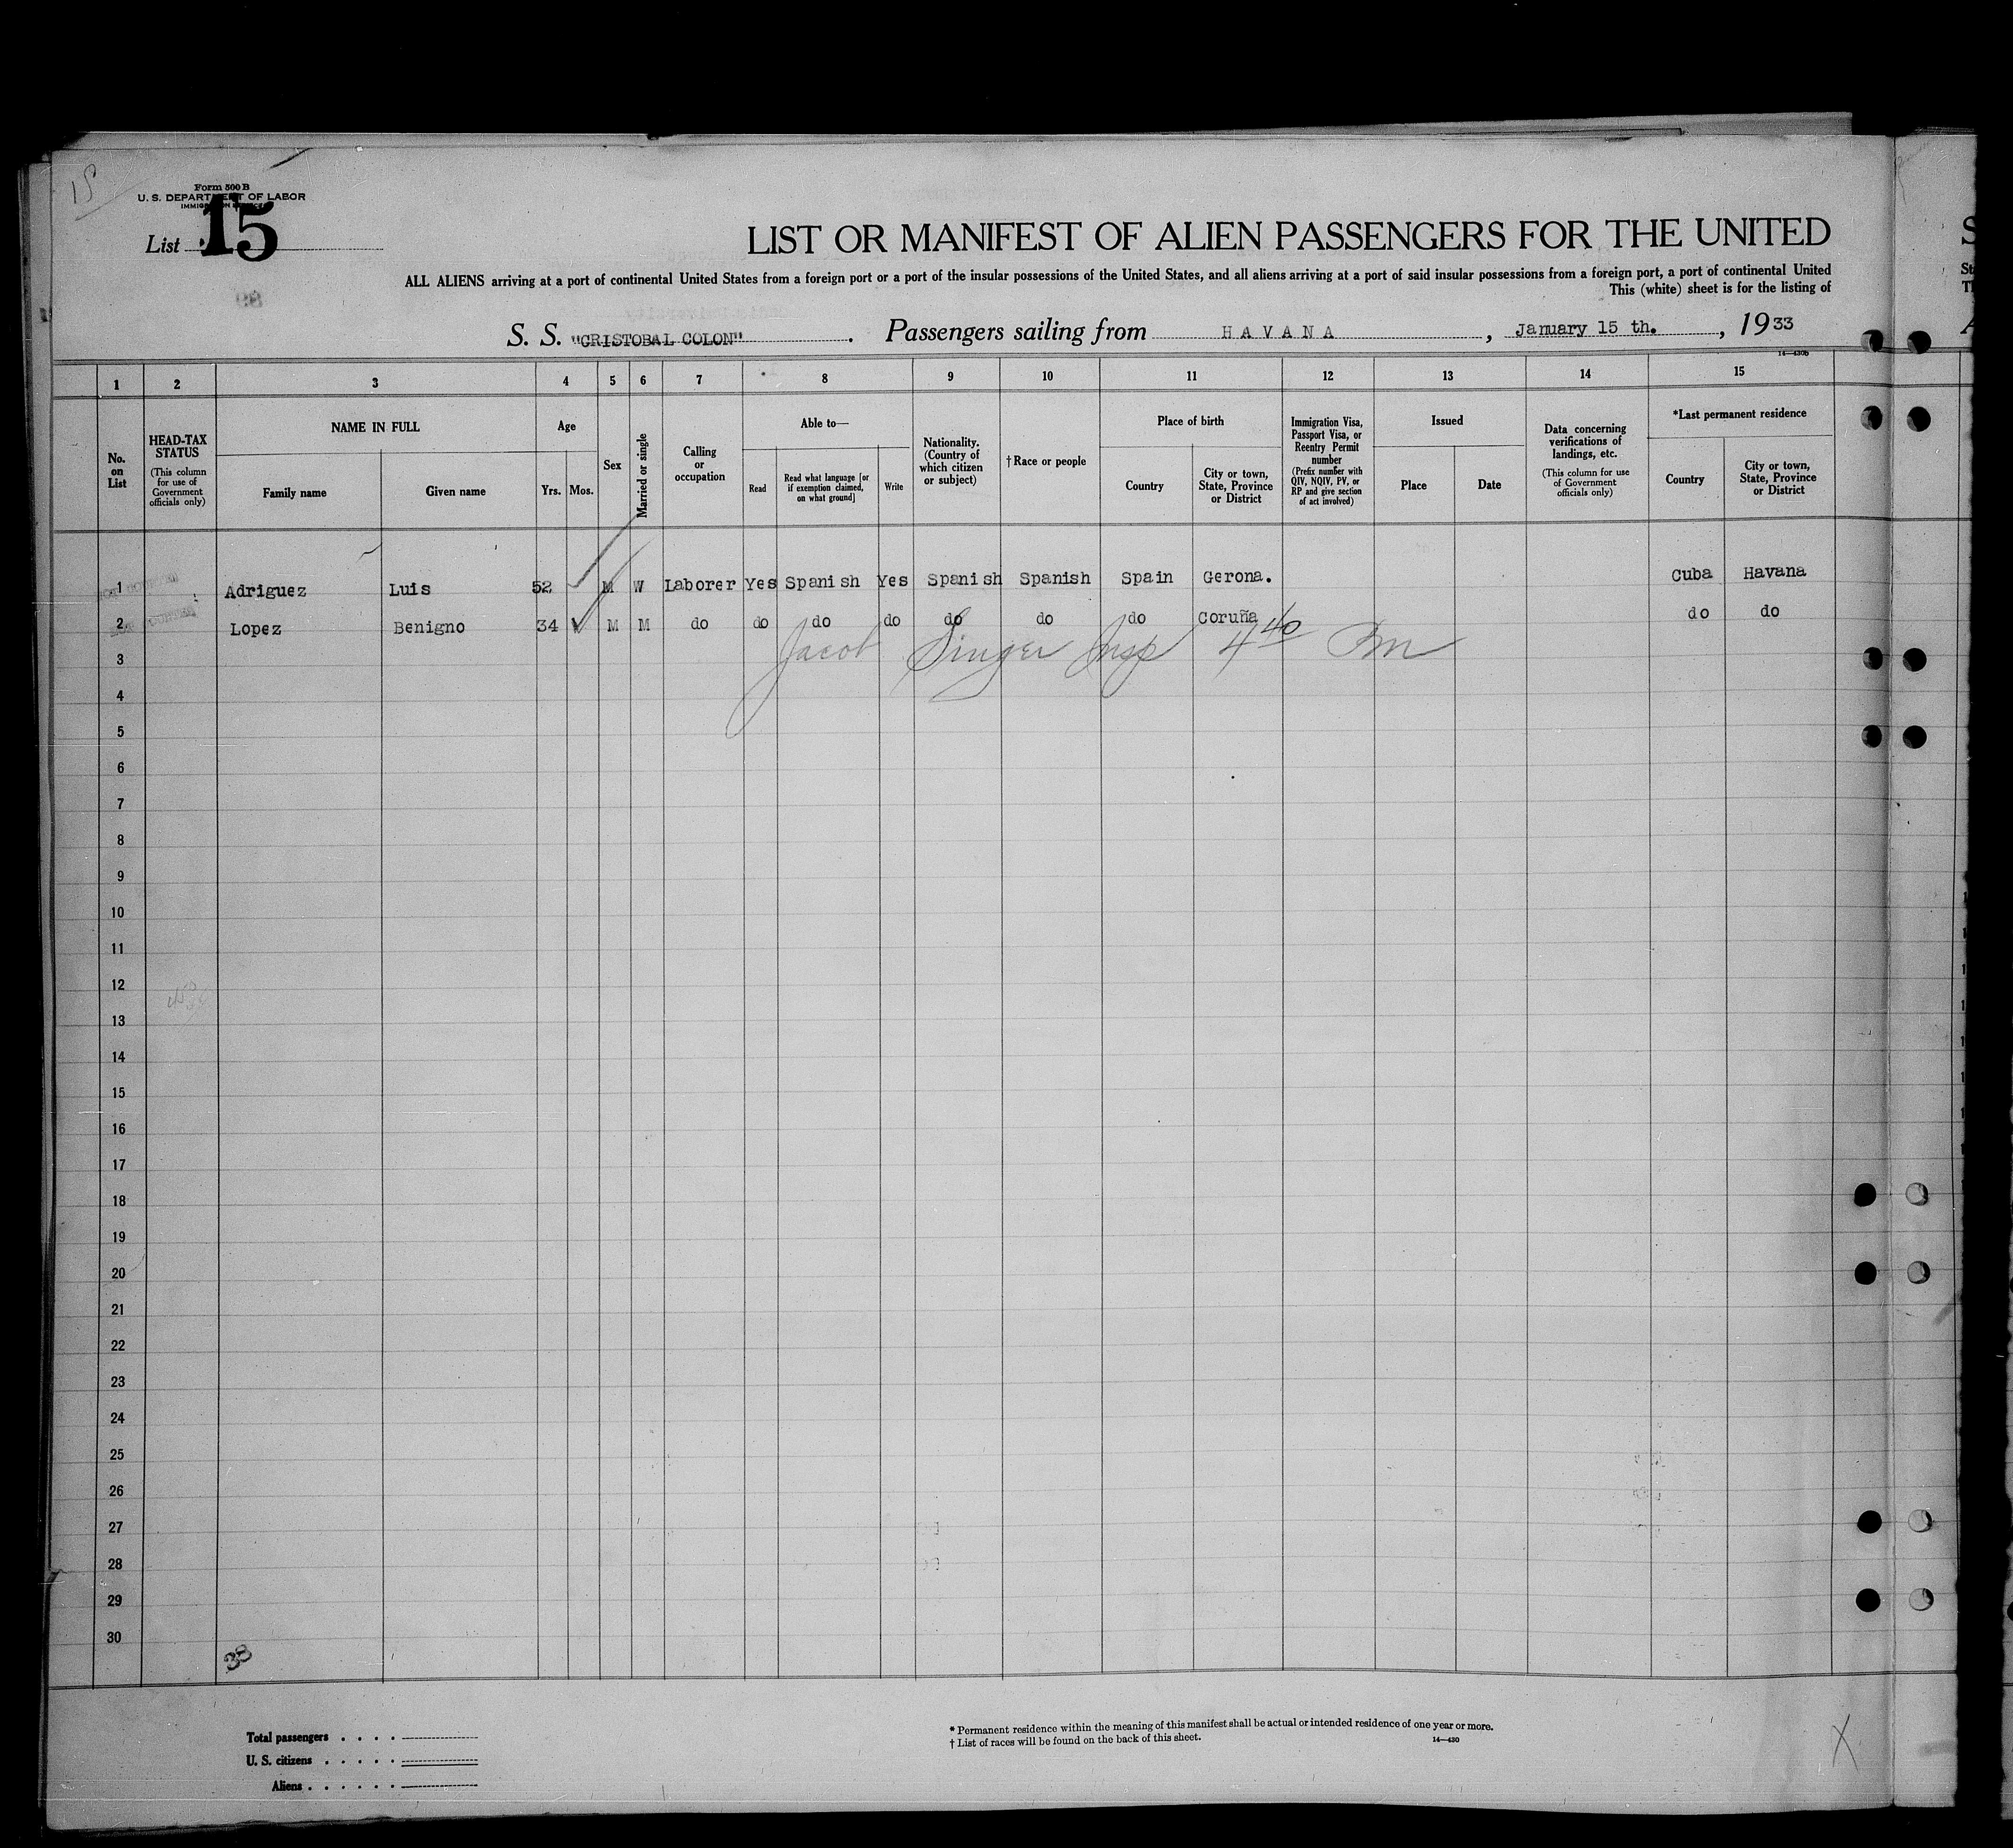 15
Form 500 B
U. S. DEPARTMENT OF LABOR
IMMIGRATION SERVICE
List 15
LIST OR MANIFEST OF ALIEN PASSENGERS FOR THE UNITED
ALL ALIENS arriving at a port of continental United States from a foreign port or a port of the insular possessions of the United States, and all aliens arriving at a port of said insular possessions from a foreign port, a port of continental United
This (white) sheet is for the listing of
S. S. "CRISTOBAL COLON". Passengers sailing from HAVANA, January 15 th., 1933
14—430b
1 2 3 4 5 6 7 8 9 10 11 12 13 14 15
No. on List
HEAD-TAX STATUS
(This column for use of Government officials only)
NAME IN FULL
Family name
Given name
Age
Yrs. Mos.
Sex
Married or single
Calling or occupation
Able to—
Read
Read what language [or if exemption claimed, on what ground]
Write
Nationality. (Country of which citizen or subject)
† Race or people
Place of birth
Country
City or town, State, Province or District
Immigration Visa, Passport Visa, or Reentry Permit number
(Prefix number with QIV, NQIV, PV, or RP and give section of act involved)
Issued
Place
Date
Data concerning verifications of landings, etc.
(This column for use of Government officials only)
*Last permanent residence
Country
City or town, State, Province or District
1 Adriguez Luis 52 M W Laborer Yes Spanish Yes Spanish Spanish Spain Gerona. Cuba Havana
2 Lopez Benigno 34 M M do do do do do do do Coruña do do
Jacob Singer Insp 4 40 Pm
3
4
5
6
7
8
9
10
11
12
13
14
15
16
17
18
19
20
21
22
23
24
25
26
27
28
29
30
38
Total passengers . . . .
U. S. citizens . . . . .
Aliens . . . . . .
* Permanent residence within the meaning of this manifest shall be actual or intended residence of one year or more.
† List of races will be found on the back of this sheet.
14—430
X